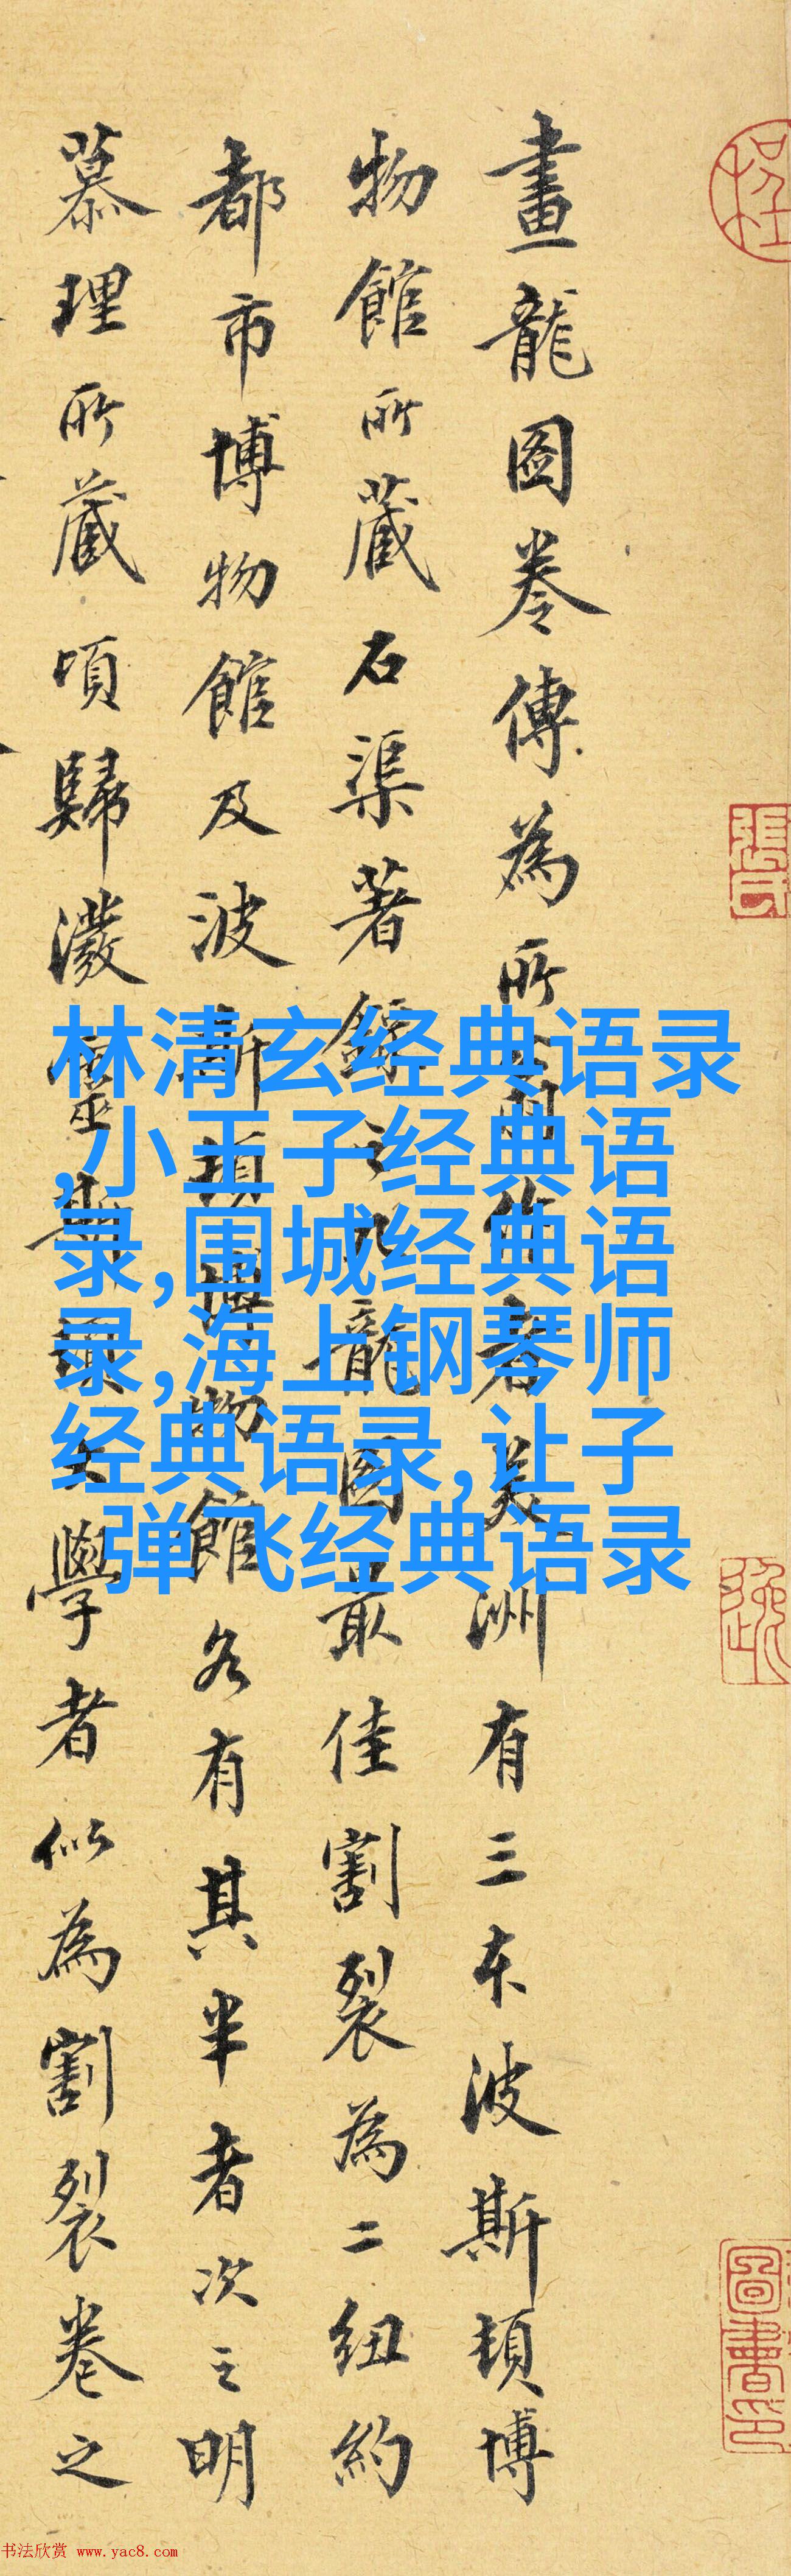 畫龍圖卷傳為所作者美洲有三本波斯頓博
物館所藏石渠著錄之九龍圖最佳割裂為二紐約
都市博物館及波斯頓博物館各有其半者次之明
慕理所藏頃歸潑靈斯頓大學者似為割裂卷之
林清玄经典语录
,小王子经典语
录,围城经典语
录,海上钢琴师
经典语录,让子
弹飞经典语录
书法欣赏 www.yac8.com